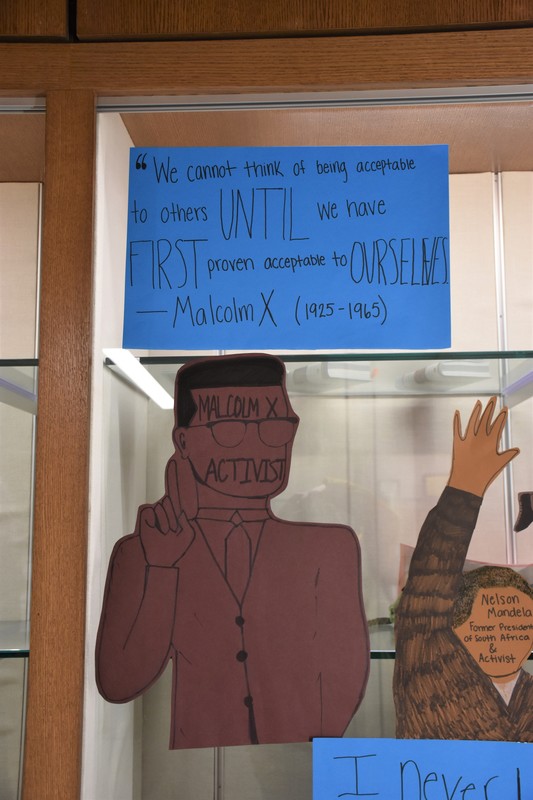 “ We cannot think of being acceptable
to others UNTIL we have
FIRST proven acceptable to OURSELVES
— Malcolm X (1925-1965)
MALCOLM X
ACTIVIST
Nelson
Mandela
Former President
of South Africa
&
Activist
I never